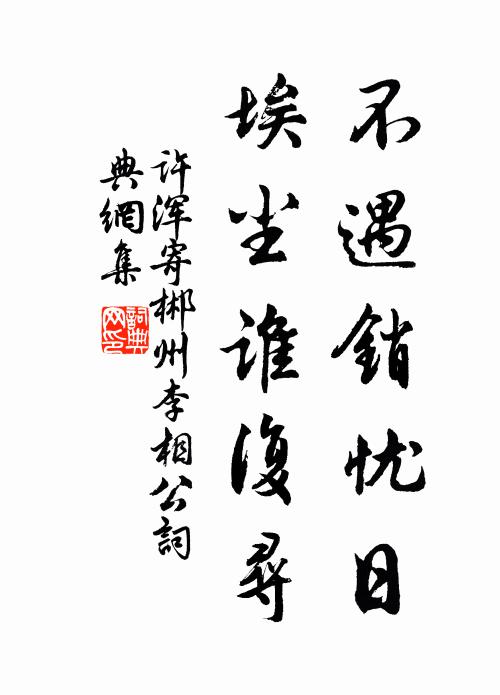 不遇銷忧日
埃尘谁復尋
许浑寄郴州李相公詞
典網集
詞典
网印